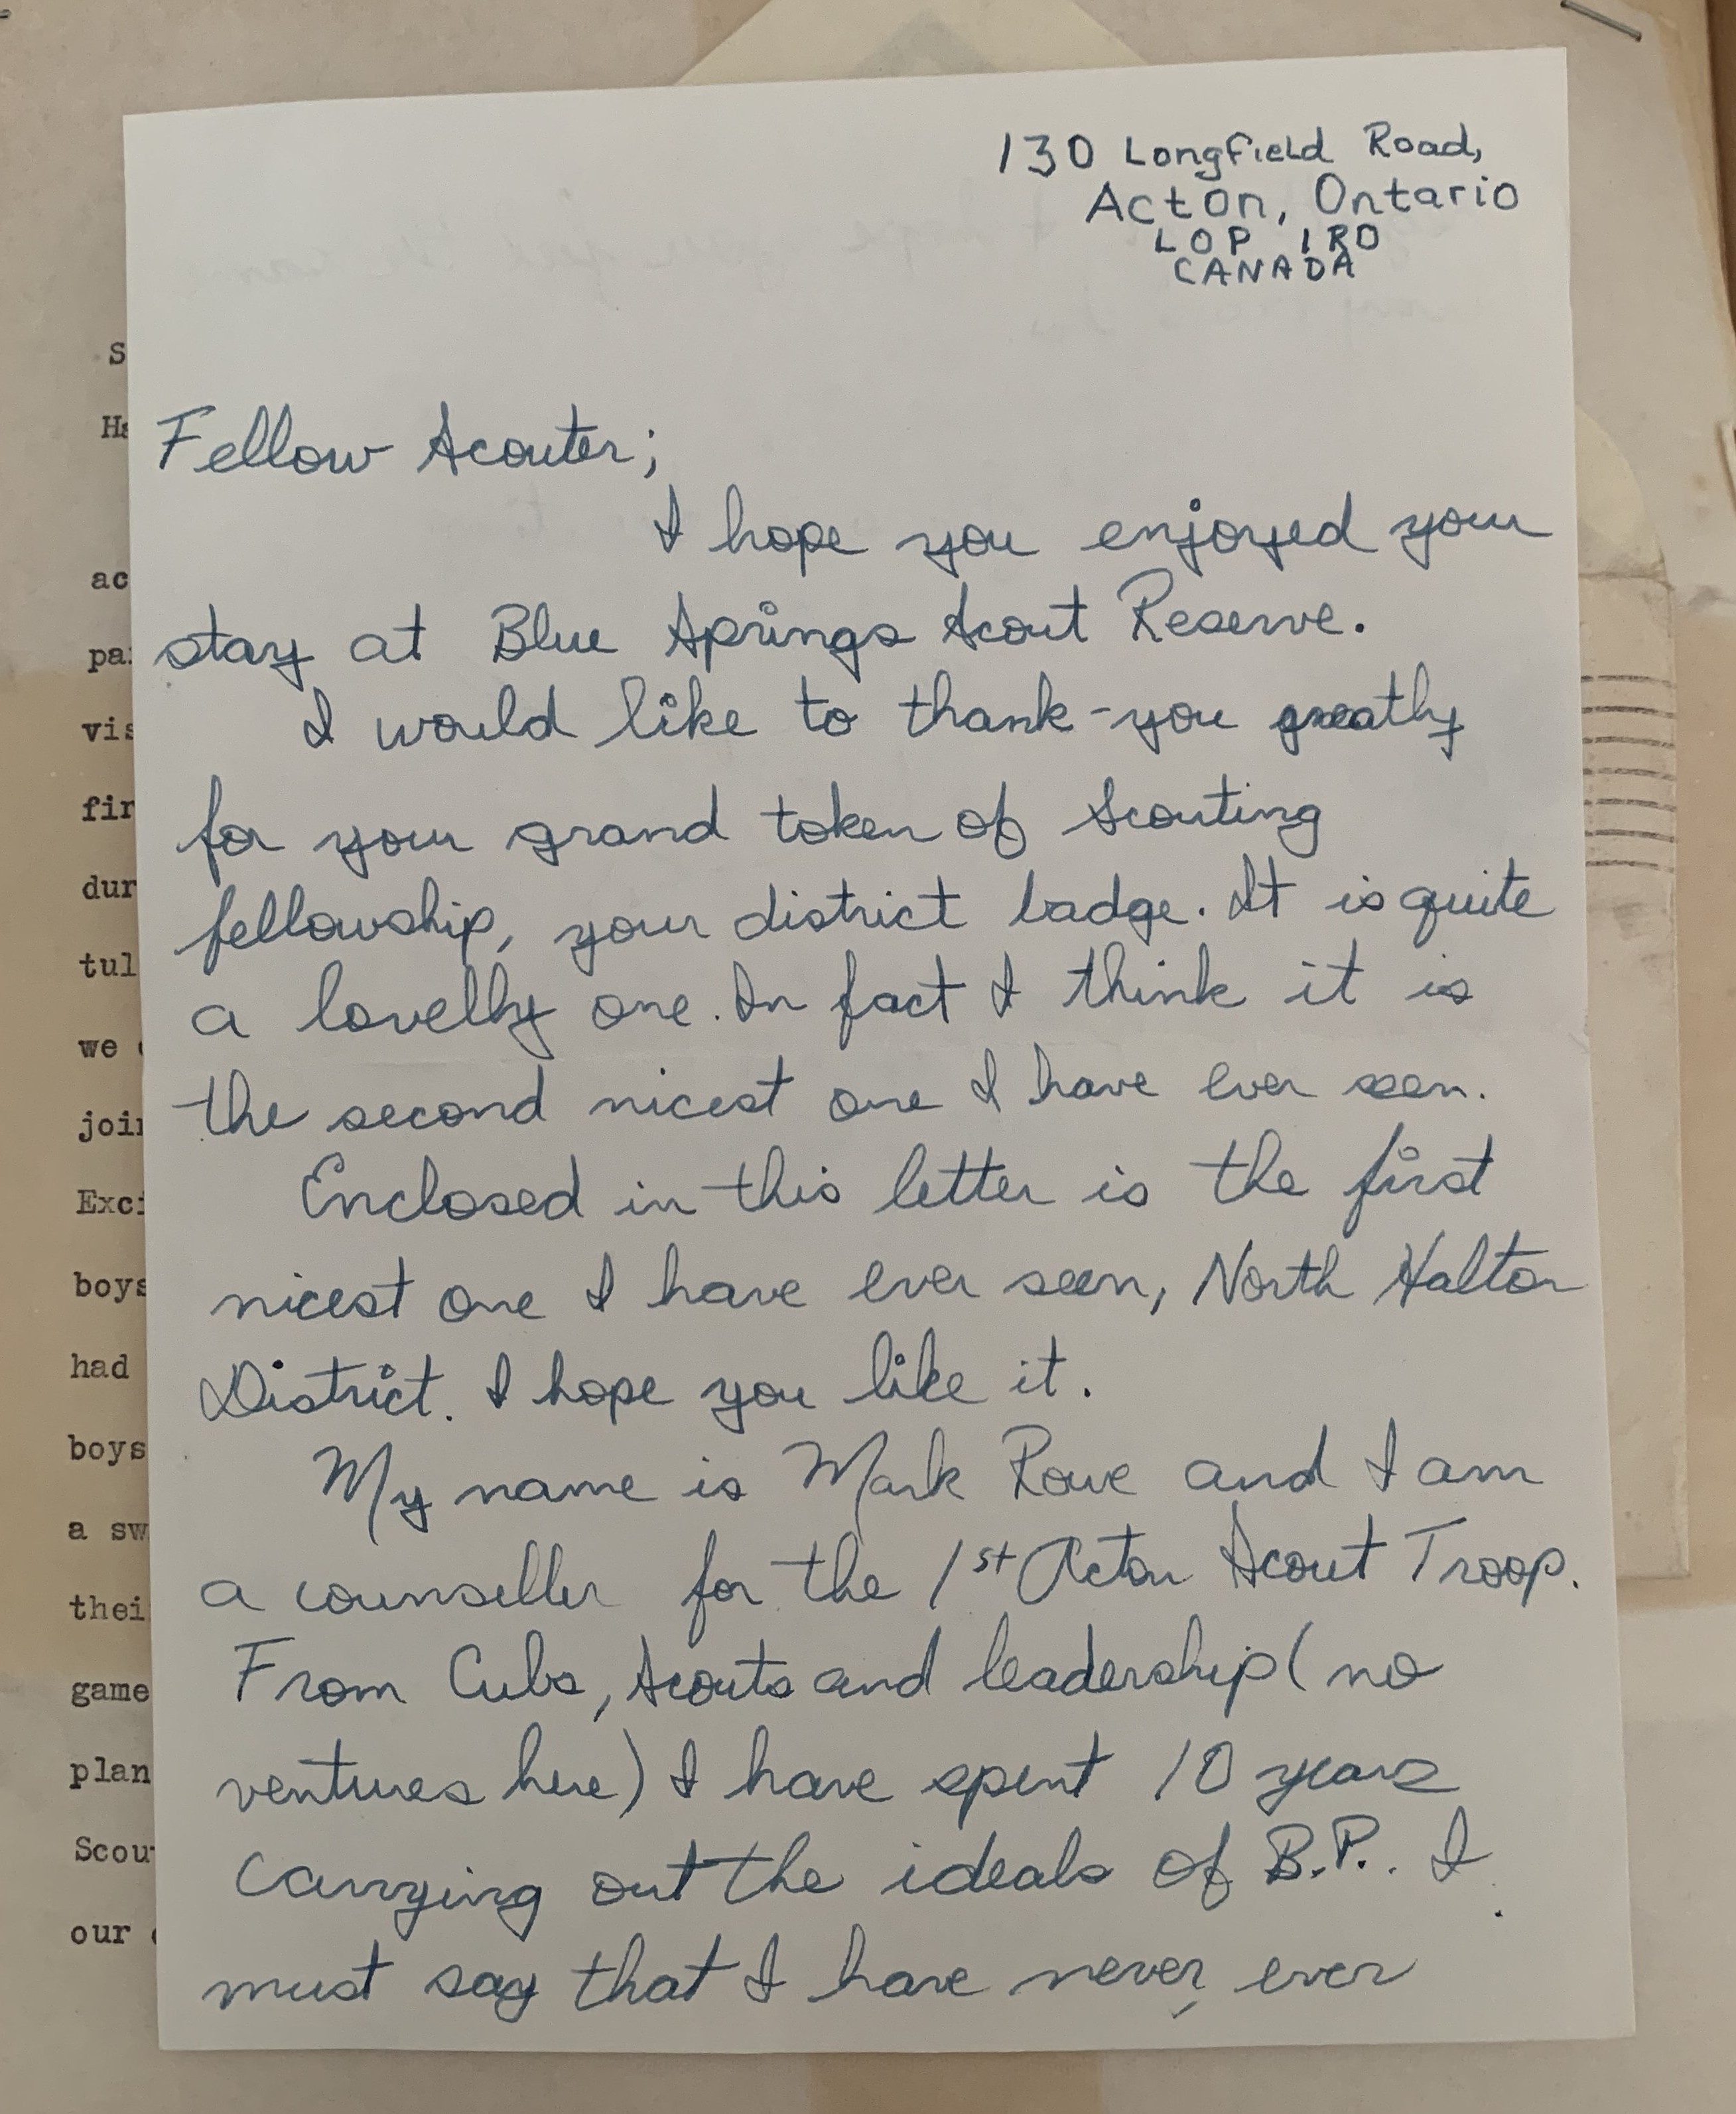 130 Longfield Road,
Acton, Ontario
L0P 1R0
CANADA
Fellow Scouter;
I hope you enjoyed your
stay at Blue Springs Scout Reserve.
I would like to thank-you greatly
for your grand token of Scouting
fellowship, your district badge. It is quite
a lovelly one. In fact I think it is
the second nicest one I have ever seen.
Enclosed in this letter is the first
nicest one I have ever seen, North Halton
District. I hope you like it.
My name is Mark Rowe and I am
a counseller for the 1st Acton Scout Troop.
From Cubs, Scouts and leadership (no
ventures here) I have spent 10 years
carrying out the ideals of B.P.. I
must say that I have never, ever
S
Ha
ac
pa
vis
fir
dur
tul
we
join
Exci
boys
had
boys
a sw
thei
game
plan
Scou
our